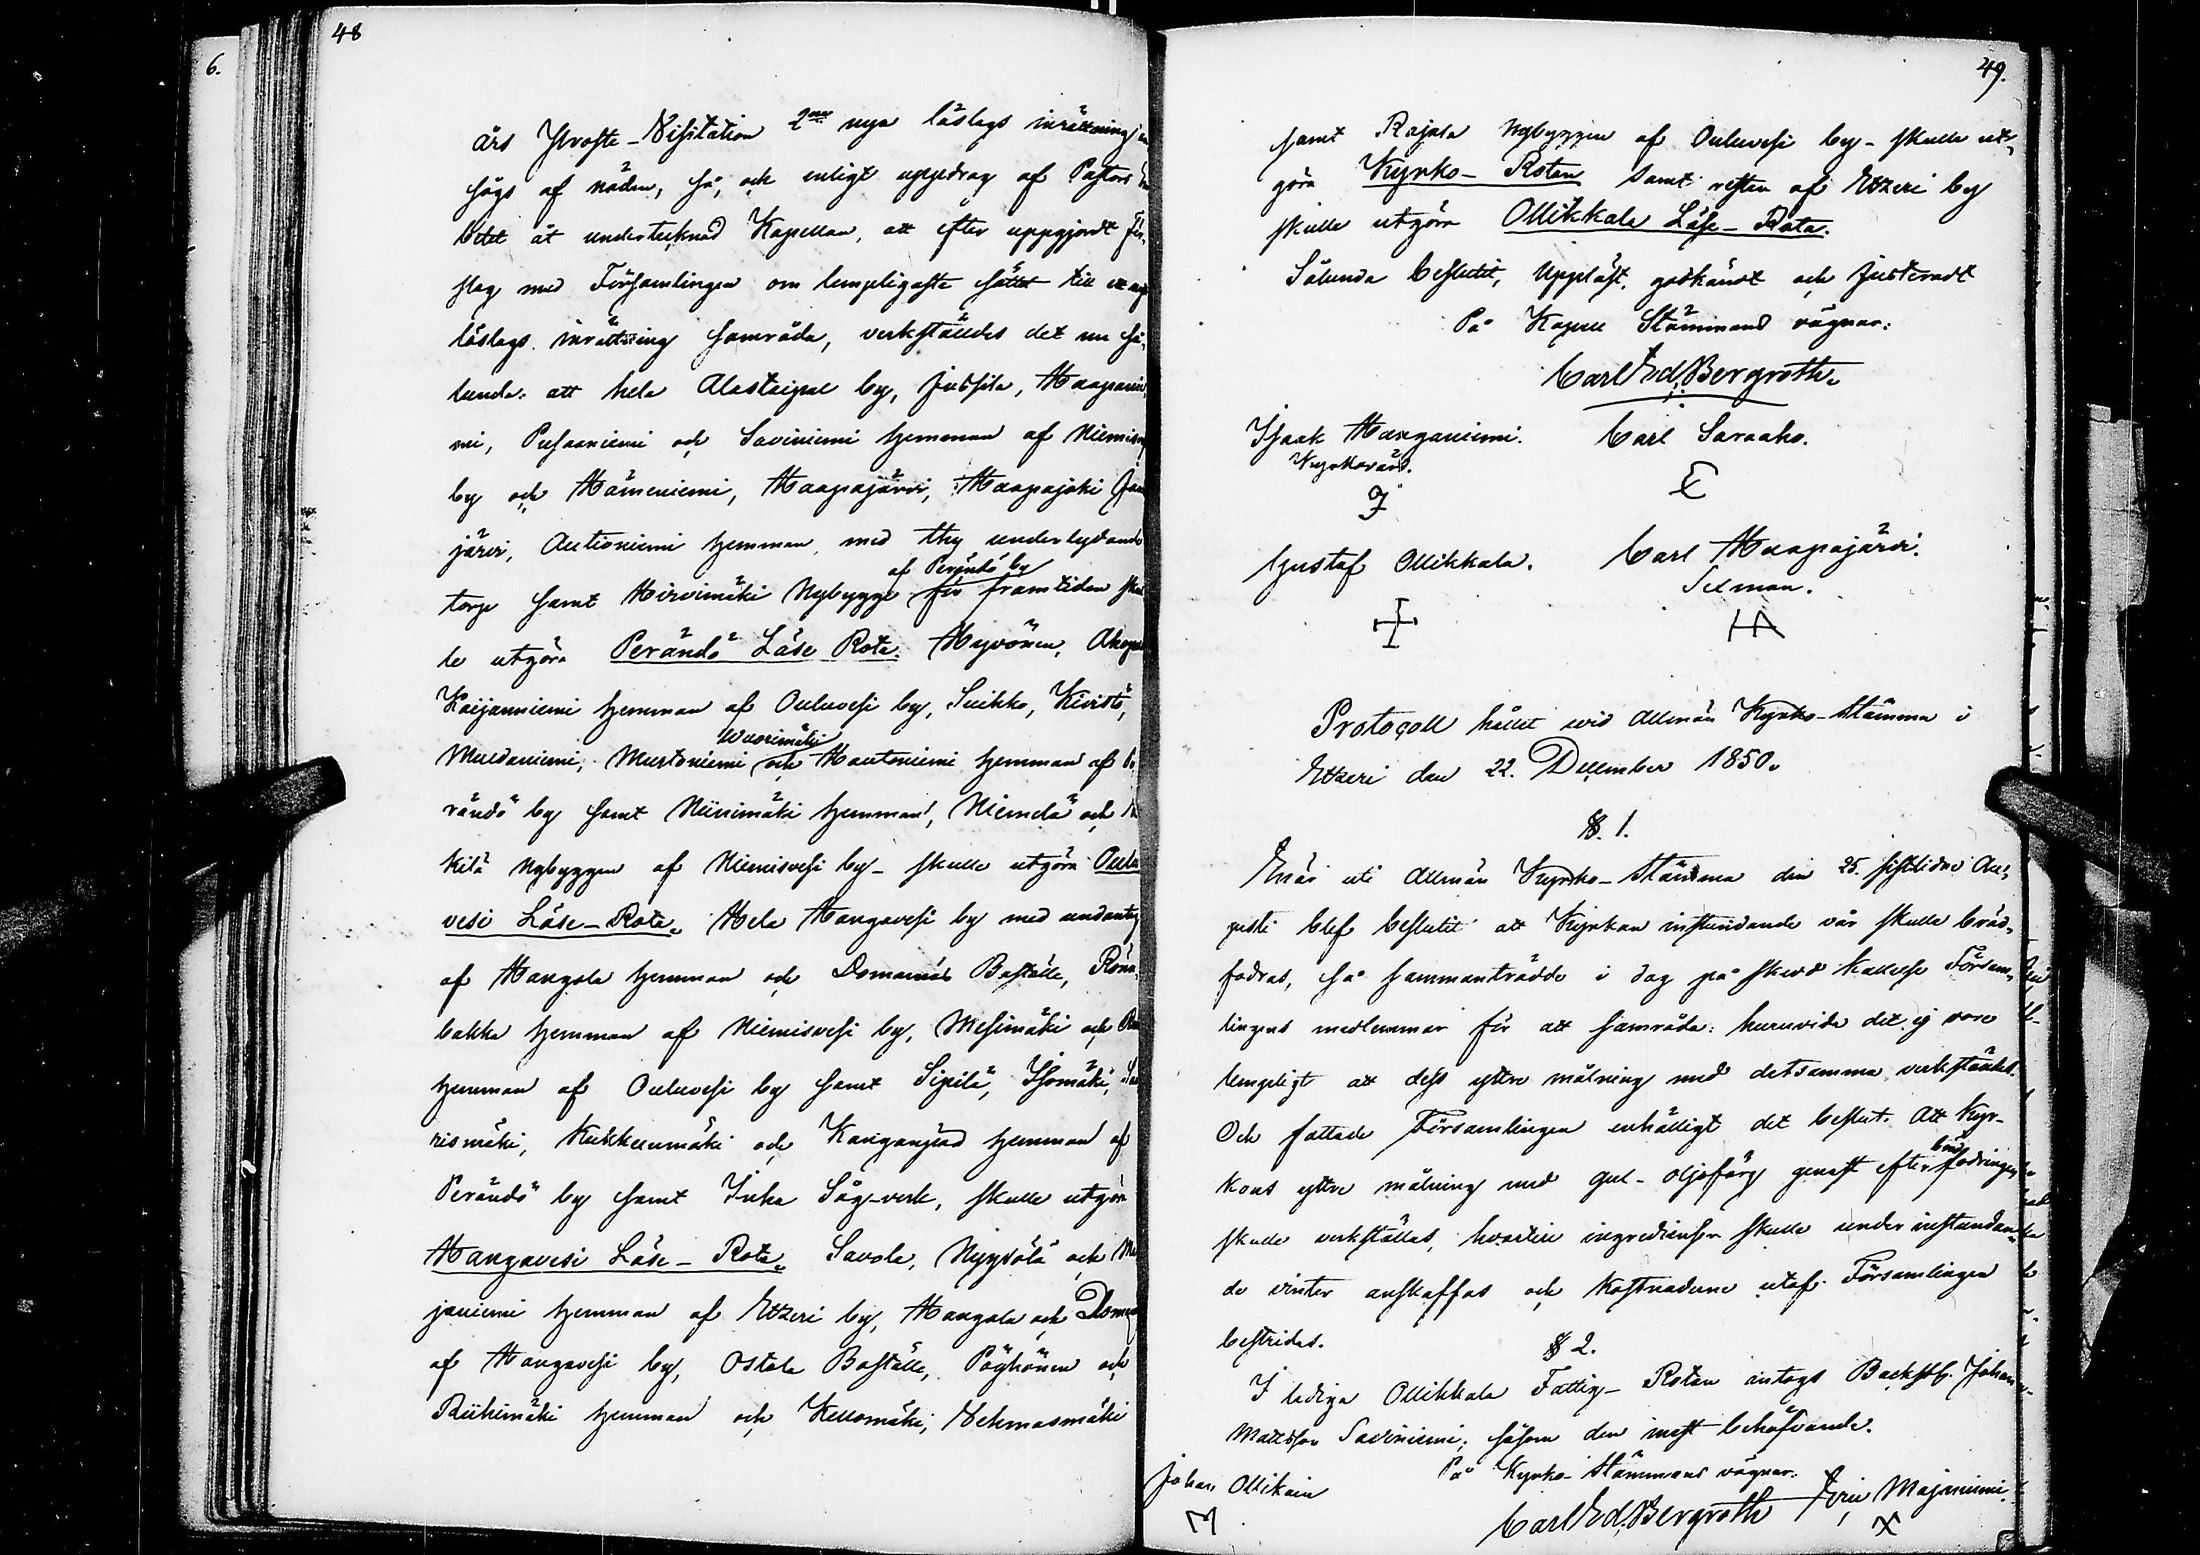 6.
48
års Prosts-Visitation 2ne nya läslags inrättning an
sågs af nöden, så, och enligt uppdrag af Pastors Em
betet åt undertecknad Kapellan, att efter uppgjordt för
slag med Församlingen om lempeligaste sättet till ett nytt
läslags inrättning samråda, verkställdes det nu så
lunda: att hela Alastaipal by, Jussila, Haapanie
mi, Pusaaniemi och Saviniemi hemman af Niemisvesi
by och Hämeniemi, Haapajärvi, Haapajoki
järvi, Autioniemi hemman, med thy underlydande
af Perändö by
torp samt Hirvimäki Nybygge för framtiden skul
le utgöra Perändö Läse Rota. Hyvönen,
Kaijanniemi hemman af Ouluvesi by, Suikko, Kivistö,
Wuorimäki
Muldaniemi, Murtoniemi och Hautoniemi hemman af Pe
rändö by samt Niinimäki hemman, Niemelä och
kilä Nybyggen af Niemisvesi by - skulle utgöra Oulu
vesi Läse-Rota. Hela Hangavesi by med undantag
af Hangola hemman och Domarnäs Boställe, Rönn
bakka hemman af Niemisvesi by, Mesimäki och
hemman af Ouluvesi by samt Sipilä, Isomäki,
rismäki, Kukkunmäki och Kanganjärvi hemman af
Perändö by samt Inha Såg-verk, skulle utgöra
Hangavesi Läse-Rota. Savola, Nyyssölä och
janiemi hemman af Etzeri by, Hangola och Domar
af Hangavesi by, Ostola Boställe, Pöyhönen och
Riihimäki hemman och Kellomäki, Vehmasmäki
49.
samt Rajala Nybyggen af Ouluvesi by - skulle ut-
göra Kyrko-Rotan samt resten af Etzeri by
skulle utgöra Ollikkala Läse-Rota.
Sålunda beslutit, Uppläst, godkändt och Justeradt
På Kapell Stämmans vägnar:
Carl Ed. Bergroth.
Isaak Haapaniemi. Carl Saraaho.
Kyrkovärd.
Gustaf Ollikkala. Carl Haapajärvi.
Sexman.
Protocoll hållet wid Allmän Kyrko-Stämma i
Etzeri den 22. December 1850.
§. 1.
Enär uti Allmän Kyrko-Stämma den 25. sistlidne Au-
gusti blef beslutit att Kyrkan instundande vår skulle bräd-
fodras, så sammanträdde i dag på skedd kallelse Försam-
lingens medlemmar för att samråda: huruvida det ej vore
lempeligt att dess yttre målning med detsamma verkställdes.
Och fattade Församlingen enhälligt det beslut: att Kyr-
bräd
kans yttre målning med gul-oljefärg genast efter fodringen
skulle verkställas, hvartill ingredienser skulle under instundan-
de vinter anskaffas och kostnaderne utaf Församlingen
bestridas.
§ 2.
I lediga Ollikkala Fattig-Rotan intogs Backst. Johan
Mattsson Saviniemi, såsom den mest behöfvande.
På Kyrko-Stämmans vägnar:
Johan Ollikain
Carl Ed. Bergroth Eric Majaniemi.